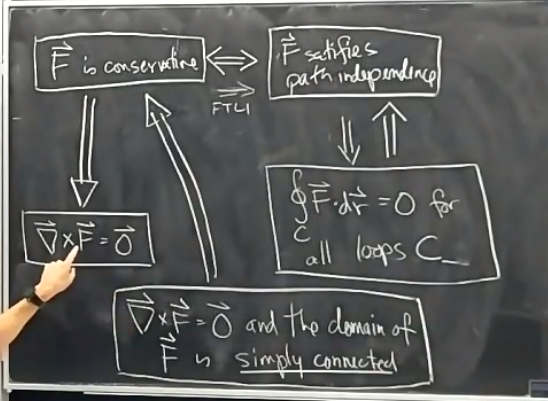 F⃗ is conservative
⟺
F⃗ satisfies
path independence
⟹
FTLI
∇⃗ × F⃗ = 0⃗
∮_C F⃗ · dr⃗ = 0 for
all loops C
∇⃗ × F⃗ = 0⃗ and the domain of
F⃗ is simply connected